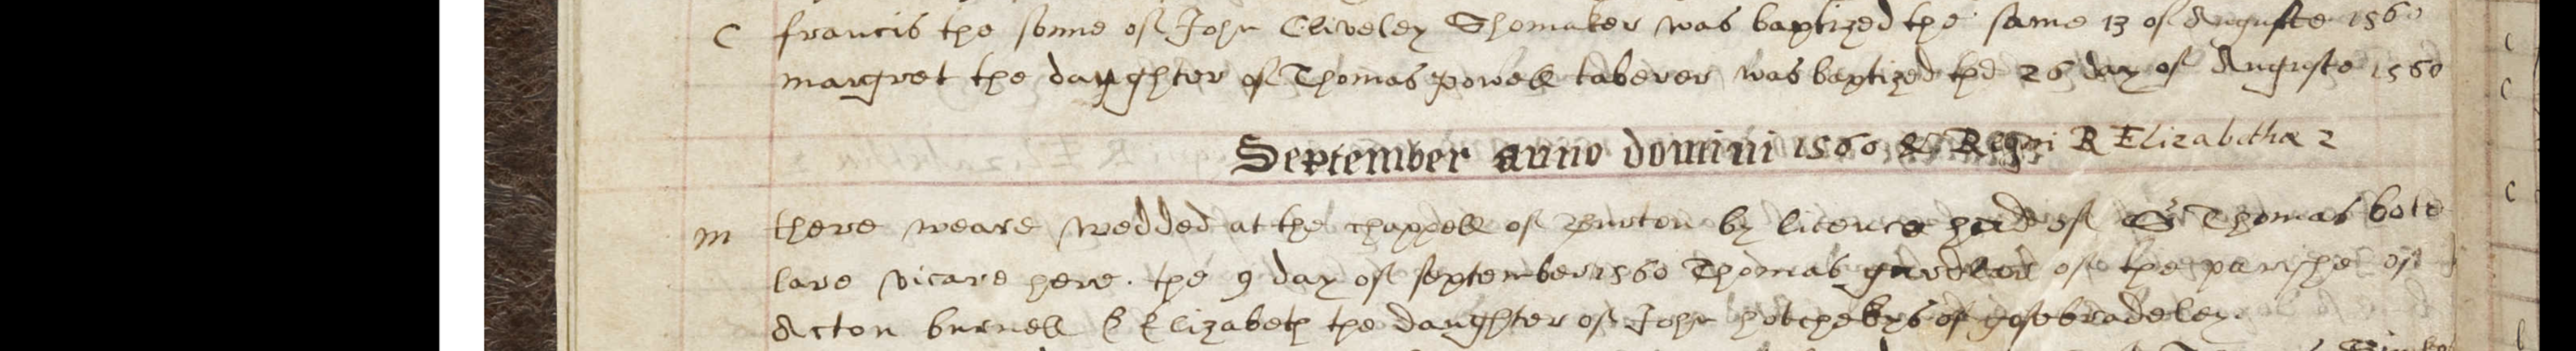 C francis the sonne of John Cliveley Shomaker was baptized the same 13 of Auguste 1560
margret the daughter of Thomas powell taberer was baptized the 26 day of Auguste 1560
September anno domini 1560 & Regni R Elizabethæ 2
m there weare wedded at the chappell of by licence hade of Sr Thomas bote
lare vicare here. the 9 day of september 1560 Thomas of the parishe of
Acton burnell & Elizabeth the daughter of John hotchekys of gosebradeley.